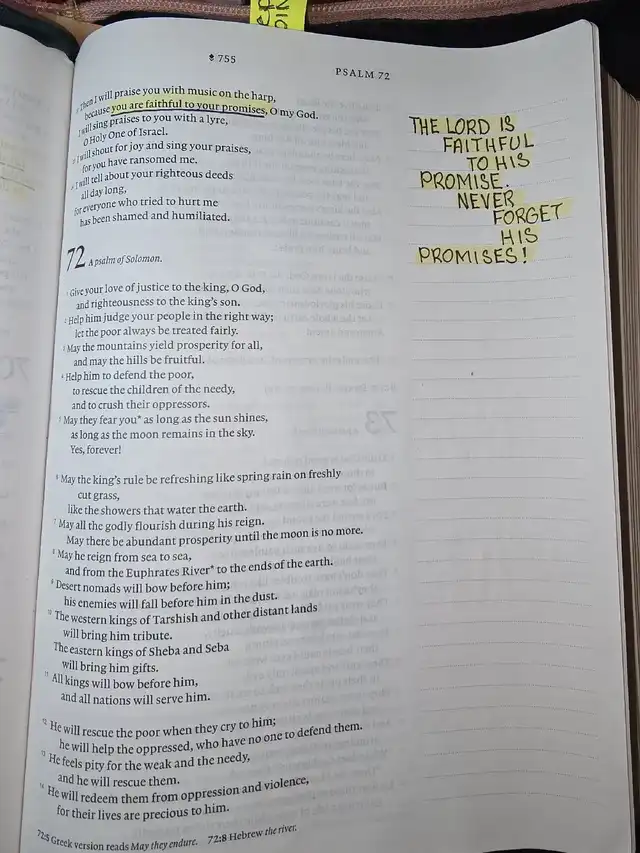 755
PSALM 72
Then I will praise you with music on the harp,
because you are faithful to your promises, O my God.
I will sing praises to you with a lyre,
O Holy One of Israel.
I will shout for joy and sing your praises,
for you have ransomed me.
I will tell about your righteous deeds
all day long,
for everyone who tried to hurt me
has been shamed and humiliated.
72 A psalm of Solomon.
1 Give your love of justice to the king, O God,
and righteousness to the king's son.
2 Help him judge your people in the right way;
let the poor always be treated fairly.
3 May the mountains yield prosperity for all,
and may the hills be fruitful.
4 Help him to defend the poor,
to rescue the children of the needy,
and to crush their oppressors.
5 May they fear you* as long as the sun shines,
as long as the moon remains in the sky.
Yes, forever!
6 May the king's rule be refreshing like spring rain on freshly
cut grass,
like the showers that water the earth.
7 May all the godly flourish during his reign.
May there be abundant prosperity until the moon is no more.
8 May he reign from sea to sea,
and from the Euphrates River* to the ends of the earth.
9 Desert nomads will bow before him;
his enemies will fall before him in the dust.
10 The western kings of Tarshish and other distant lands
will bring him tribute.
The eastern kings of Sheba and Seba
will bring him gifts.
11 All kings will bow before him,
and all nations will serve him.
12 He will rescue the poor when they cry to him;
he will help the oppressed, who have no one to defend them.
13 He feels pity for the weak and the needy,
and he will rescue them.
14 He will redeem them from oppression and violence,
for their lives are precious to him.
72:5 Greek version reads May they endure. 72:8 Hebrew the river.
THE LORD IS
FAITHFUL
TO HIS
PROMISE.
NEVER
FORGET
HIS
PROMISES!